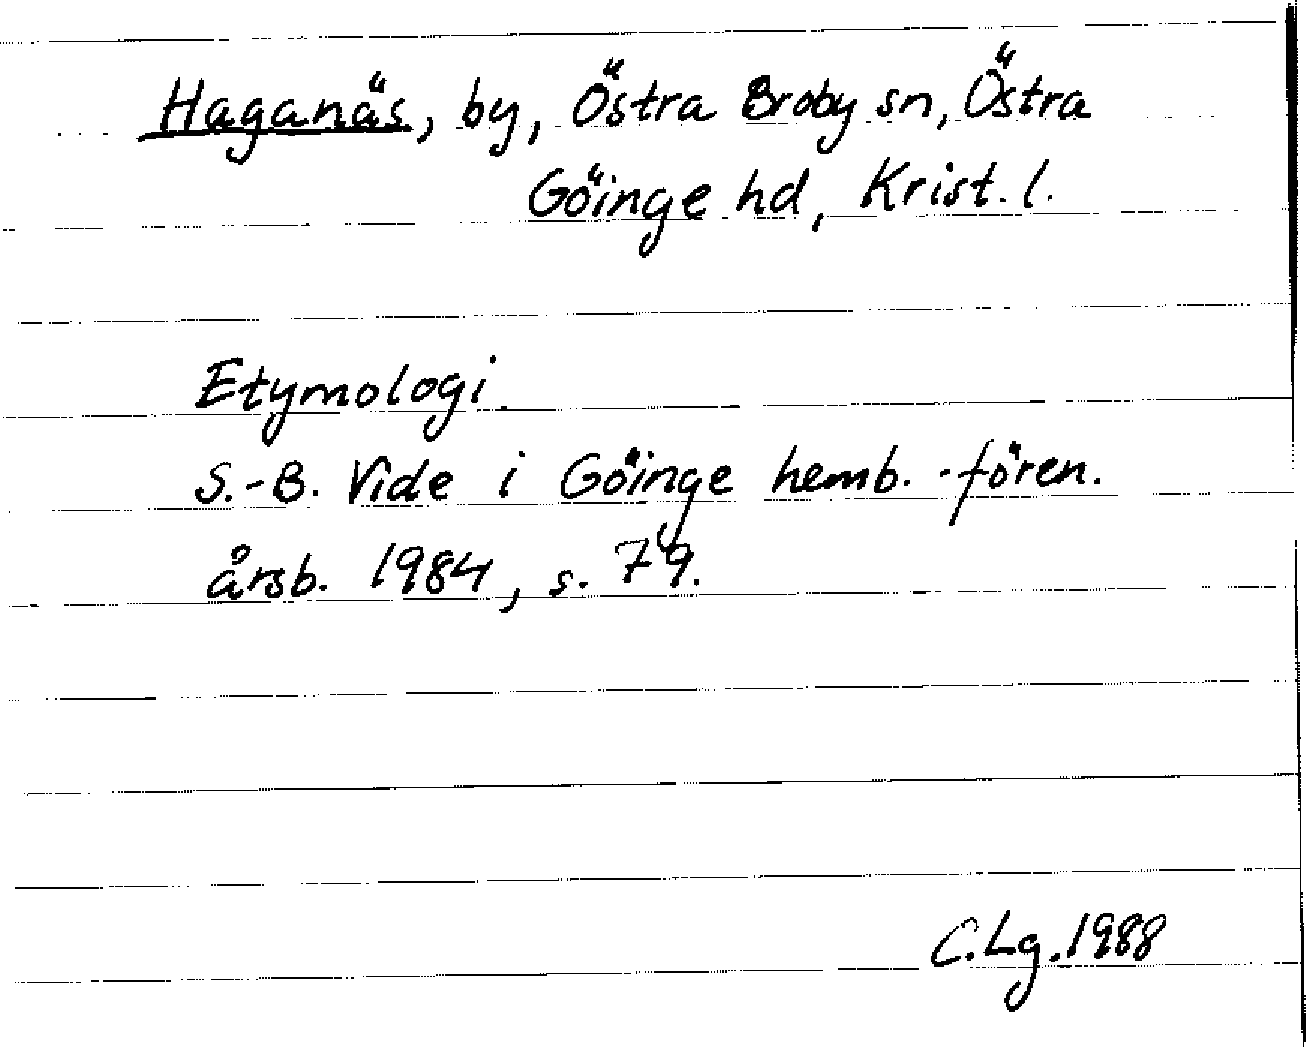 Haganäs, by, Östra Broby sn, Östra
Göinge hd, Krist. l.
Etymologi
S.-B. Vide i Göinge hemb.-fören.
årsb. 1984, s. 79.
C.Lg. 1988